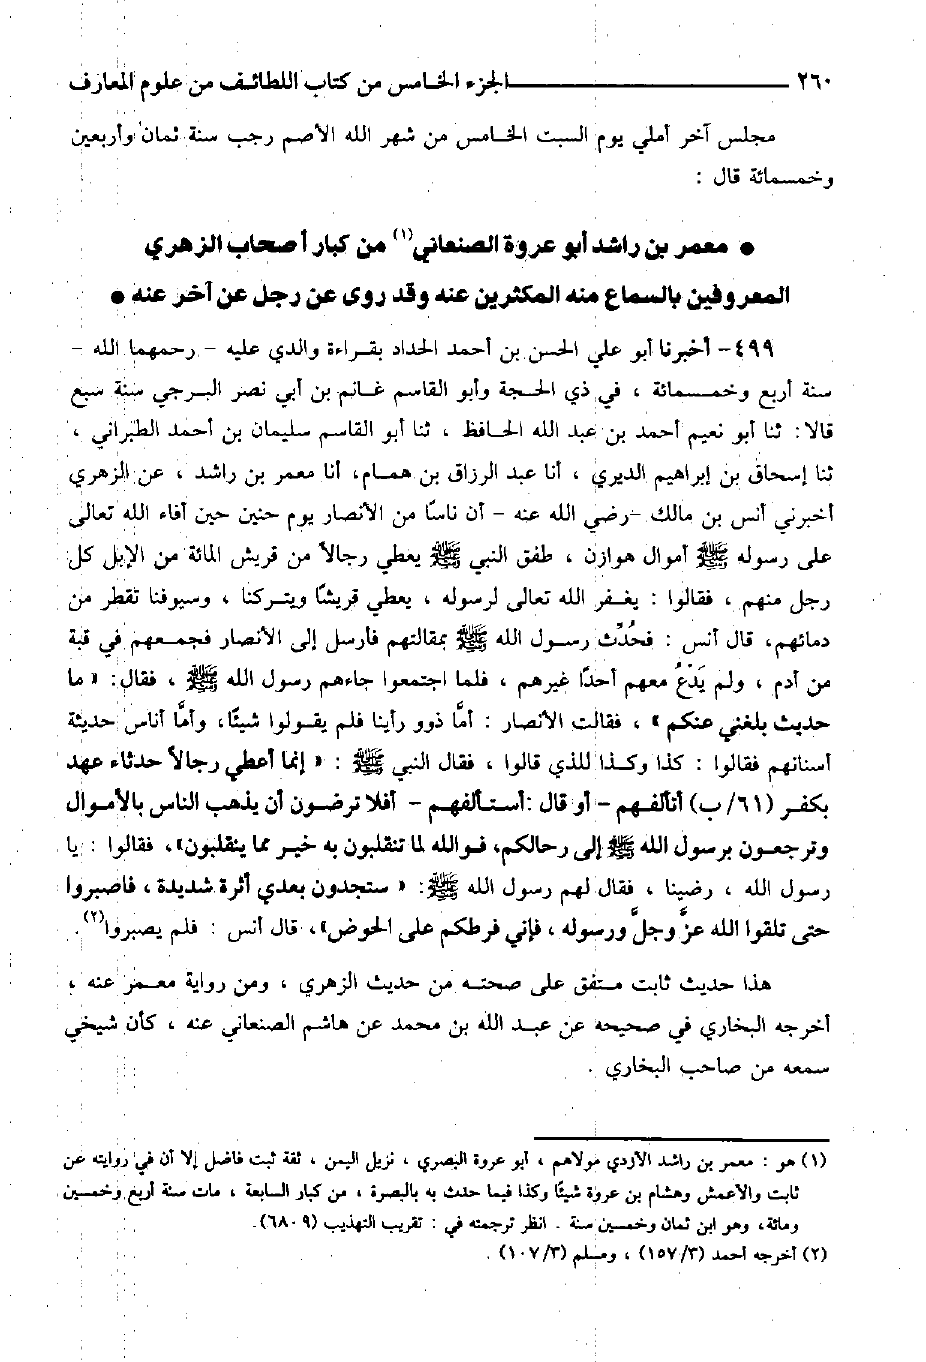 ٢٦٠ ــــــــــــــــ الجزء الخامس من كتاب اللطائف من علوم المعارف
مجلس آخر أملي يوم السبت الخامس من شهر الله الأصم رجب سنة ثمان وأربعين
وخمسمائة قال :
● معمر بن راشد أبو عروة الصنعاني(١) من كبار أصحاب الزهري
المعروفين بالسماع منه المكثرين عنه وقد روى عن رجل عن آخر عنه ●
٤٩٩- أخبرنا أبو علي الحسن بن أحمد الحداد بقراءة والدي عليه - رحمهما الله -
سنة أربع وخمسمائة ، في ذي الحجة وأبو القاسم غانم بن أبي نصر البرجي سنة سبع
قالا: ثنا أبو نعيم أحمد بن عبد الله الحافظ ، ثنا أبو القاسم سليمان بن أحمد الطبراني ،
ثنا إسحاق بن إبراهيم الديري ، أنا عبد الرزاق بن همام، أنا معمر بن راشد ، عن الزهري
أخبرني أنس بن مالك -رضي الله عنه - أن ناسًا من الأنصار يوم حنين حين أفاء الله تعالى
على رسوله ﷺ أموال هوازن ، طفق النبي ﷺ يعطي رجالاً من قريش المائة من الإبل كل
رجل منهم ، فقالوا : يغفر الله تعالى لرسوله ، يعطي قريشًا ويتركنا ، وسيوفنا تقطر من
دمائهم، قال أنس : فحُدِّث رسول الله ﷺ بمقالتهم فأرسل إلى الأنصار فجمعهم في قبة
من أدم ، ولم يَدْعُ معهم أحدًا غيرهم ، فلما اجتمعوا جاءهم رسول الله ﷺ ، فقال: « ما
حديث بلغني عنكم » ، فقالت الأنصار : أمَّا ذوو رأينا فلم يقولوا شيئًا، وأمَّا أناس حديثة
أسنانهم فقالوا : كذا وكذا للذي قالوا ، فقال النبي ﷺ : « إنما أعطي رجالاً حدثاء عهد
بكفر (٦١/ ب) أتألفهم - أو قال :أستألفهم - أفلا ترضون أن يذهب الناس بالأموال
وترجعون برسول الله ﷺ إلى رحالكم، فوالله لما تنقلبون به خير مما ينقلبون»، فقالوا : يا
رسول الله ، رضينا ، فقال لهم رسول الله ﷺ: « ستجدون بعدي أثرة شديدة ، فاصبروا
حتى تلقوا الله عزَّ وجلَّ ورسوله ، فإني فرطكم على الحوض»، قال أنس : فلم يصبروا(٢).
هذا حديث ثابت متفق على صحته من حديث الزهري ، ومن رواية معمر عنه ،
أخرجه البخاري في صحيحه عن عبد الله بن محمد عن هاشم الصنعاني عنه ، كأن شيخي
سمعه من صاحب البخاري .
(١) هو : معمر بن راشد الأزدي مولاهم ، أبو عروة البصري ، نزيل اليمن ، ثقة ثبت فاضل إلا أن في روايته عن
ثابت والأعمش وهشام بن عروة شيئًا وكذا فيما حدث به بالبصرة ، من كبار السابعة ، مات سنة أربع وخمسين
ومائة، وهو ابن ثمان وخمسين سنة . انظر ترجمته في : تقريب التهذيب (٦٨٠٩).
(٢) أخرجه أحمد (١٥٧/٣) ، ومسلم (١٠٧/٣) .